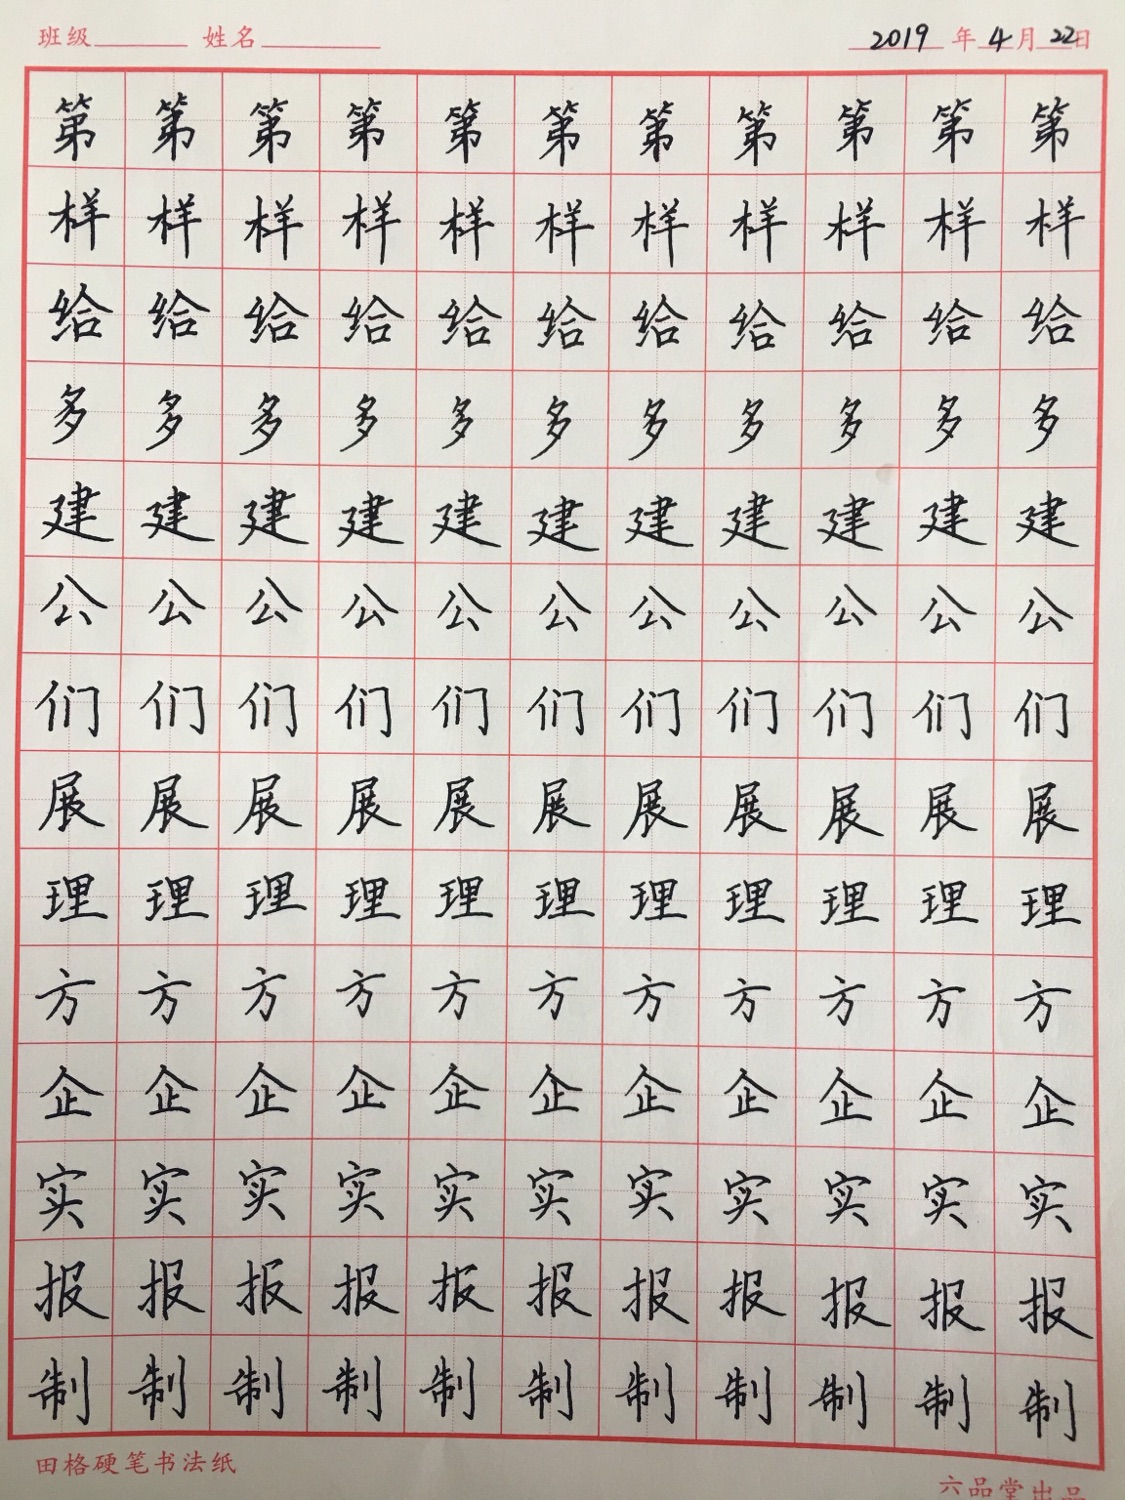 班级 姓名 2019年4月22日
第第第第第第第第第第第
样样样样样样样样样样样
给给给给给给给给给给给
多多多多多多多多多多多
建建建建建建建建建建建
公公公公公公公公公公公
们们们们们们们们们们们
展展展展展展展展展展展
理理理理理理理理理理理
方方方方方方方方方方方
企企企企企企企企企企企
实实实实实实实实实实实
报报报报报报报报报报报
制制制制制制制制制制制
田格硬笔书法纸
六品堂出品